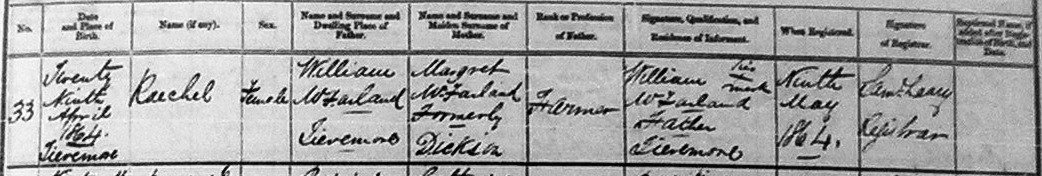 No.
Date and Place of Birth.
Name (if any).
Sex.
Name and Surname and Dwelling Place of Father.
Name and Surname and Maiden Surname of Mother.
Rank or Profession of Father.
Signature, Qualification, and Residence of Informant.
When Registered.
Signature of Registrar.
Baptismal Name, if added after Registration of Birth, and Date.
33
Twenty
Ninth
April
1864.
Tievemore
Raechel
Female
William
McFarland
Tievemore
Margret
McFarland
Formerly
Dickson
Farmer
William his mark
McFarland
Father
Tievemore
Ninth
May
1864.
Saml Leary
Registrar